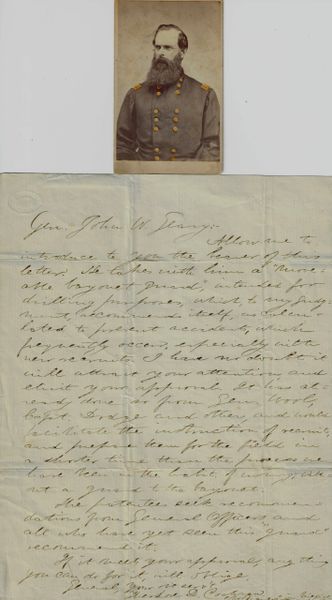 Gen. John W. Geary:
Allow me to
introduce to you the bearer of this
letter. He takes with him a "Move-
able bayonet guard," intended for
drilling purposes, which, to my judg-
ment, recommends itself, as calcu-
lated to prevent accidents, which
frequently occur, especially with
new recruits. I have no doubt it
will attract your attention and
elicit your approval. It has al-
ready done so from Genl Wool,
Capt. Dodge and others, and would
facilitate the instruction of recruits,
and prepare them for the field in
a shorter time than the process we
have been in the habit of using, with-
out a guard to the bayonet.
The patentee seeks recommen-
dations from General Officers and
all who have yet seen this "guard"
recommend it.
If it meet your approval, any thing
you can do for it, will oblige,
General, your
Michael Corcoran